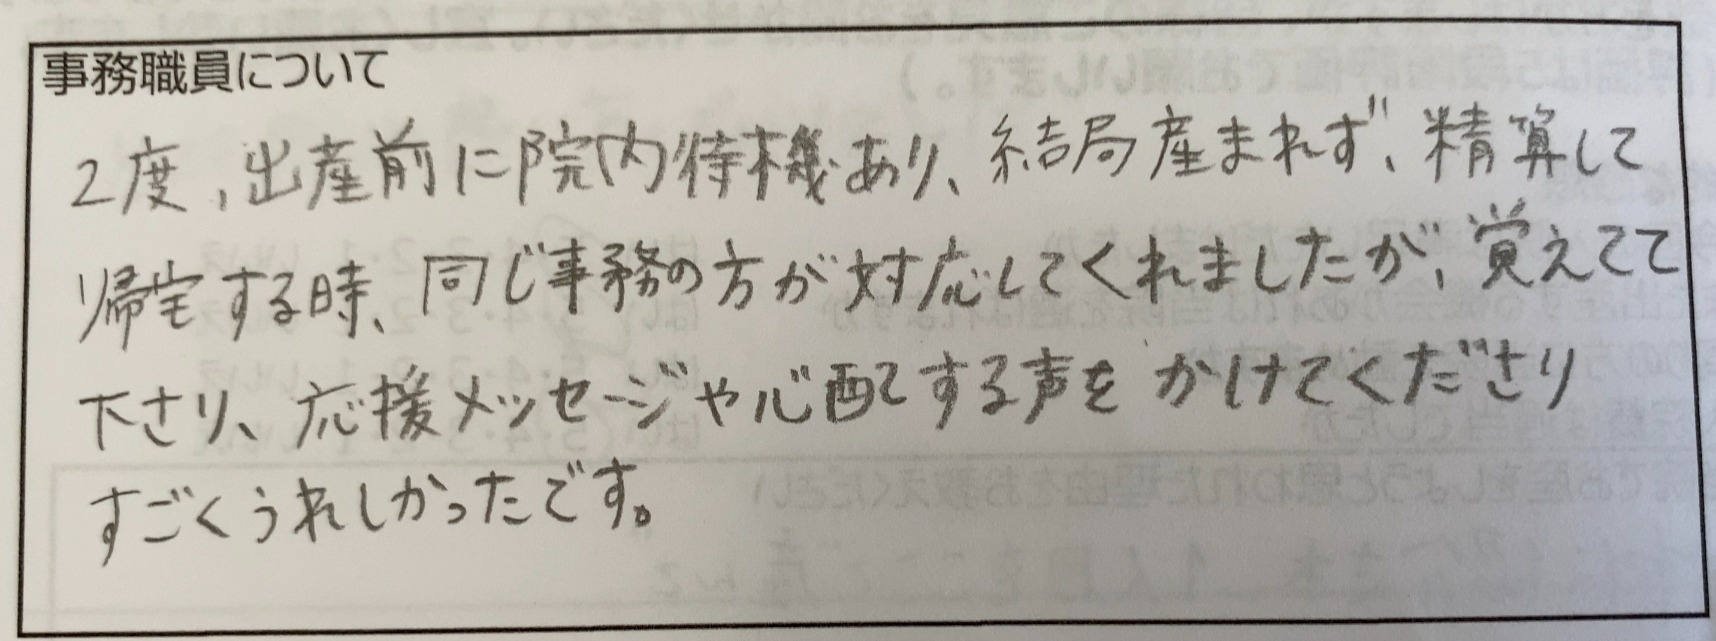 事務職員について
2度、出産前に院内待機あり、結局産まれず、精算して
帰宅する時、同じ事務の方が対応してくれましたが、覚えてて
下さり、応援メッセージや心配する声をかけてくださり
すごくうれしかったです。